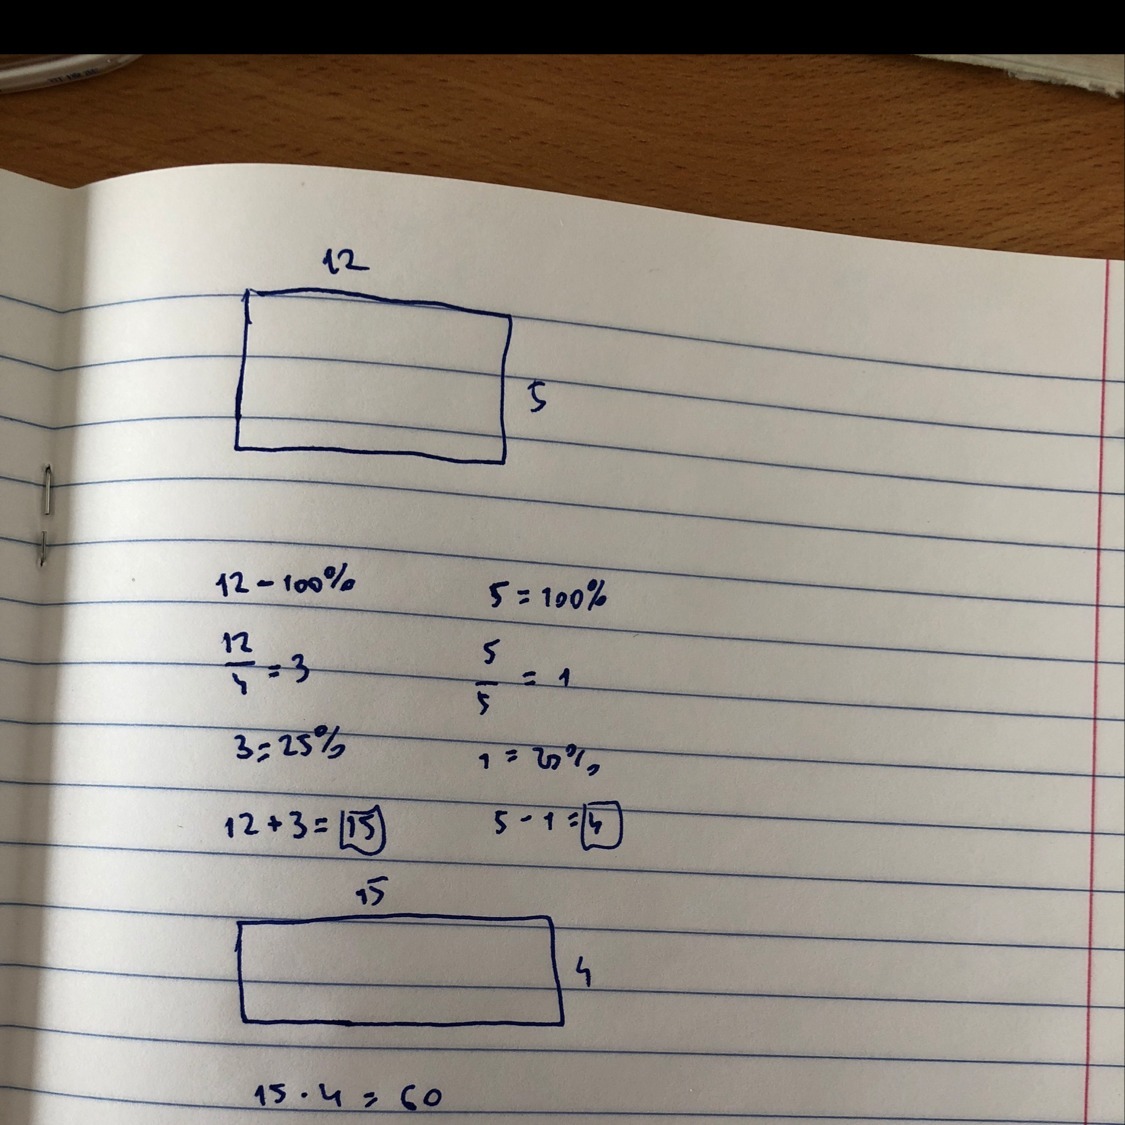 12
5
12 - 100%    5 = 100%
12/4 = 3    5/5 = 1
3 = 25%    1 = 20%
12 + 3 = 15    5 - 1 = 4
15
4
15 · 4 = 60